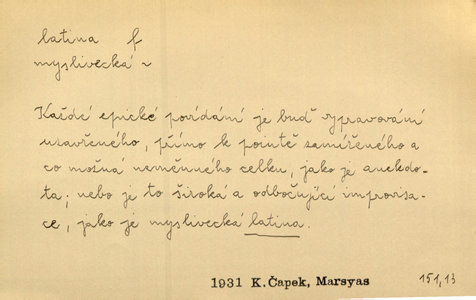 latina f
myslivecká ~
Každé epické povídání je buď vypravování
uzavřeného, přímo k pointě zaměřeného a
co možná neměnného celku, jako je anekdo-
ta; nebo je to široká a odbočující improvisa-
ce, jako je myslivecká latina.
1931 K. Čapek, Marsyas
151,13